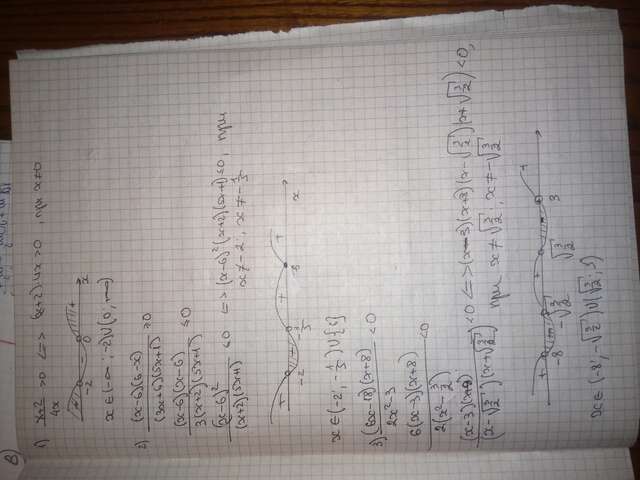 1) (x+2)/4x > 0 <=> (x+2)·4x > 0, при x ≠ 0
+ -2 - 0 + x
x ∈ (-∞; -2) ∪ (0; +∞)
2) (x-6)(6-x)/(3x+6)(5x+1) ≥ 0
(x-6)(x-6)/3(x+2)(5x+1) ≤ 0
(x-6)²/(x+2)(5x+1) ≤ 0 <=> (x-6)²(x+2)(5x+1) ≤ 0, при x ≠ -2; x ≠ -1/5
+ -2 - -1/5 + + x
x ∈ (-2; -1/5) ∪ {6}
3) (6x-18)(x+8)/2x²-3 < 0
6(x-3)(x+8)/2(x²-3/2) < 0
(x-3)(x+8)/(x-√3/2)(x+√3/2) < 0 <=> (x-3)(x+8)(x-√3/2)(x+√3/2) < 0,
при x ≠ √3/2; x ≠ -√3/2
+ -8 -√3/2 √3/2 3 +
x ∈ (-8; -√3/2) ∪ (√3/2; 3)